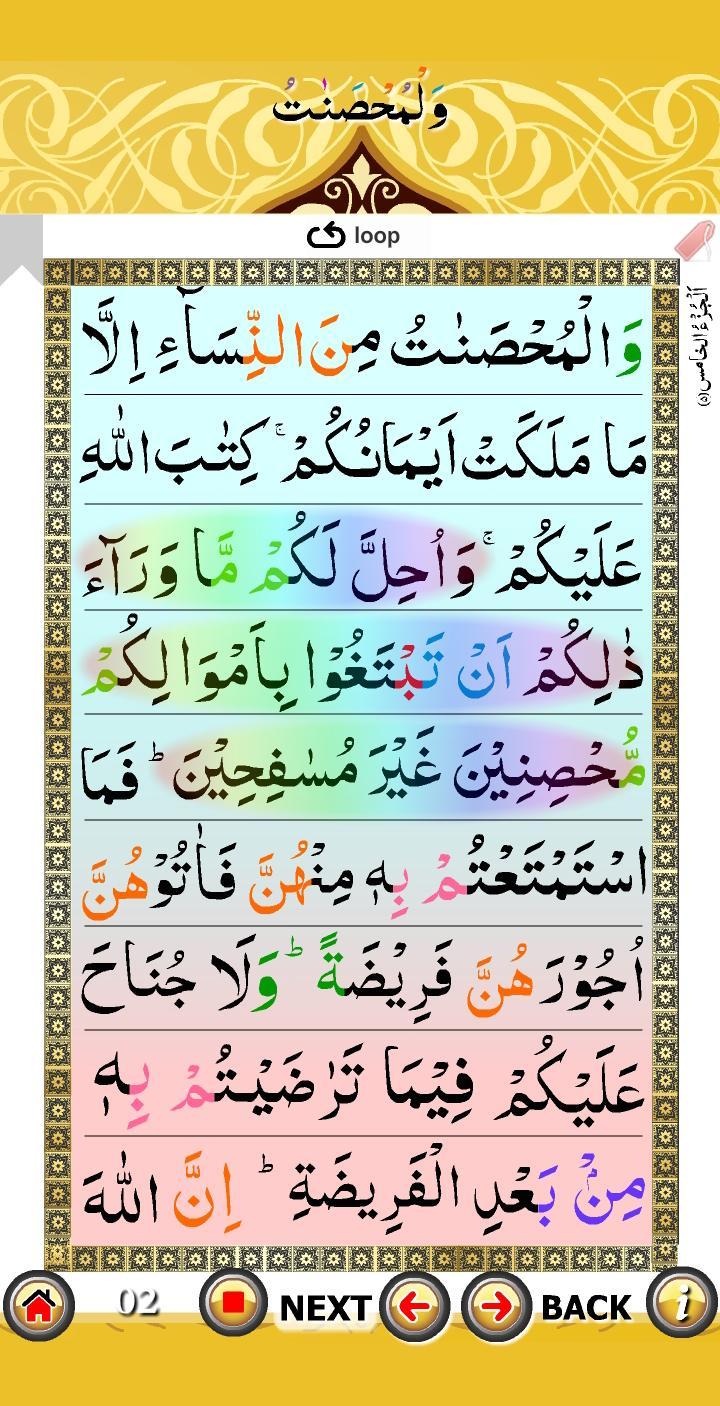 وَلْمُحْصَنٰتُ
loop
اَلْجُزْءُ الخَامِس (۵)
وَالْمُحْصَنٰتُ مِنَ النِّسَآءِ اِلَّا
مَا مَلَكَتْ اَيْمَانُكُمْ ۚ كِتٰبَ اللّٰهِ
عَلَيْكُمْ ۚ وَاُحِلَّ لَكُمْ مَّا وَرَآءَ
ذٰلِكُمْ اَنْ تَبْتَغُوْا بِاَمْوَالِكُمْ
مُّحْصِنِيْنَ غَيْرَ مُسٰفِحِيْنَ ؕ فَمَا
اسْتَمْتَعْتُمْ بِهٖ مِنْهُنَّ فَاٰتُوْهُنَّ
اُجُوْرَهُنَّ فَرِيْضَةً ؕ وَلَا جُنَاحَ
عَلَيْكُمْ فِيْمَا تَرٰضَيْتُمْ بِهٖ
مِنْۢ بَعْدِ الْفَرِيْضَةِ ؕ اِنَّ اللّٰهَ
02 NEXT BACK i